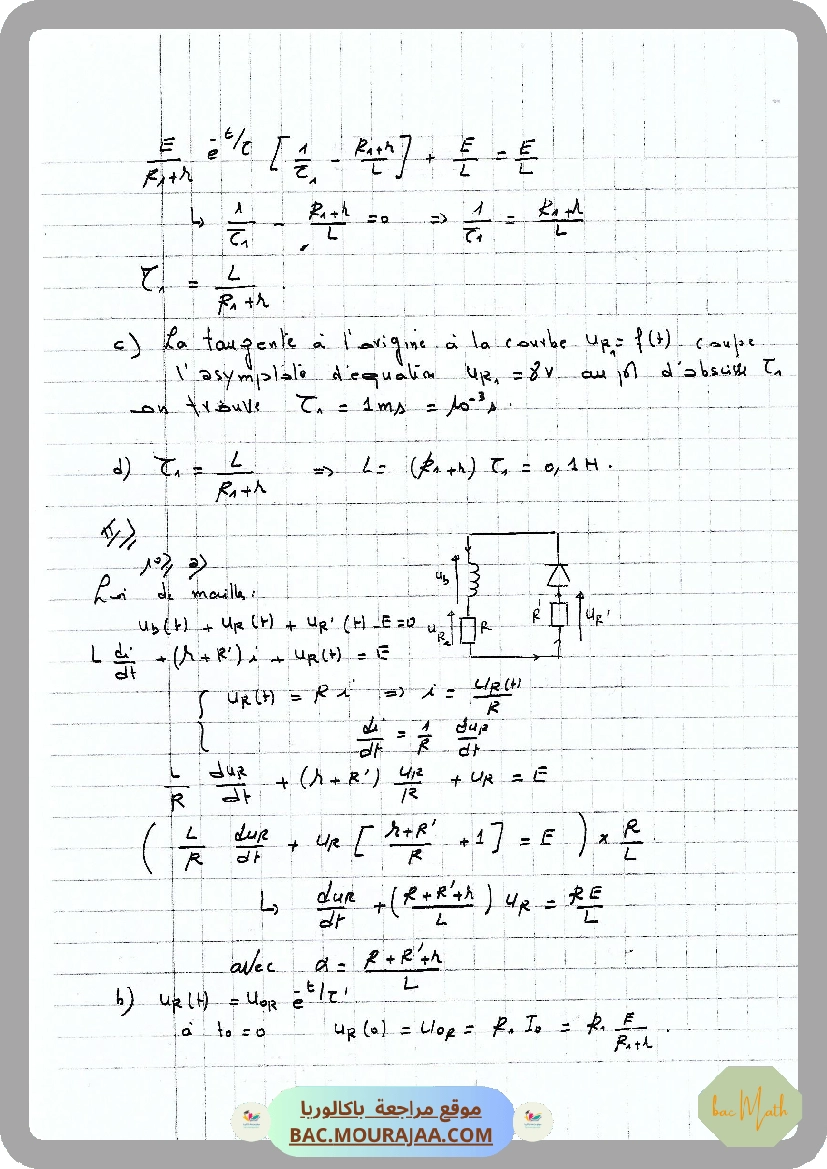 E/(R₁+r) e^(-t/τ) [1/τ₁ - (R₁+r)/L] + E/L = E/L
↳ 1/τ₁ - (R₁+r)/L = 0 => 1/τ₁ = (R₁+r)/L
τ₁ = L/(R₁+r).
c) La tangente à l'origine à la courbe u_R₁ = f(t) coupe
l'asymptote d'equation u_R₁ = 8V au pt d'abscisse τ₁
on trouve τ₁ = 1ms = 10⁻³s.
d) τ₁ = L/(R₁+r) => L = (R₁+r) τ₁ = 0,1H.
II)
1°) a)
Loi de mailles:
u_b(t) + u_R(t) + u_R'(t) - E = 0
L di/dt + (r+R')i + u_R(t) = E
u_b
u_R₂
R
R'
u_R'
{ u_R(t) = R i => i = u_R(t)/R
di/dt = 1/R du_R/dt
L/R du_R/dt + (r+R') u_R/R + u_R = E
( L/R du_R/dt + u_R [ (r+R')/R + 1 ] = E ) × R/L
↳ du_R/dt + ( (R+R'+r)/L ) u_R = RE/L
avec α = (R+R'+r)/L
b) u_R(t) = U_0R e^(-t/τ')
à t₀ = 0 u_R(0) = U_0R = R₁ I₀ = R₁ E/(R₁+r).
موقع مراجعة باكالوريا
BAC.MOURAJAA.COM
bac Math